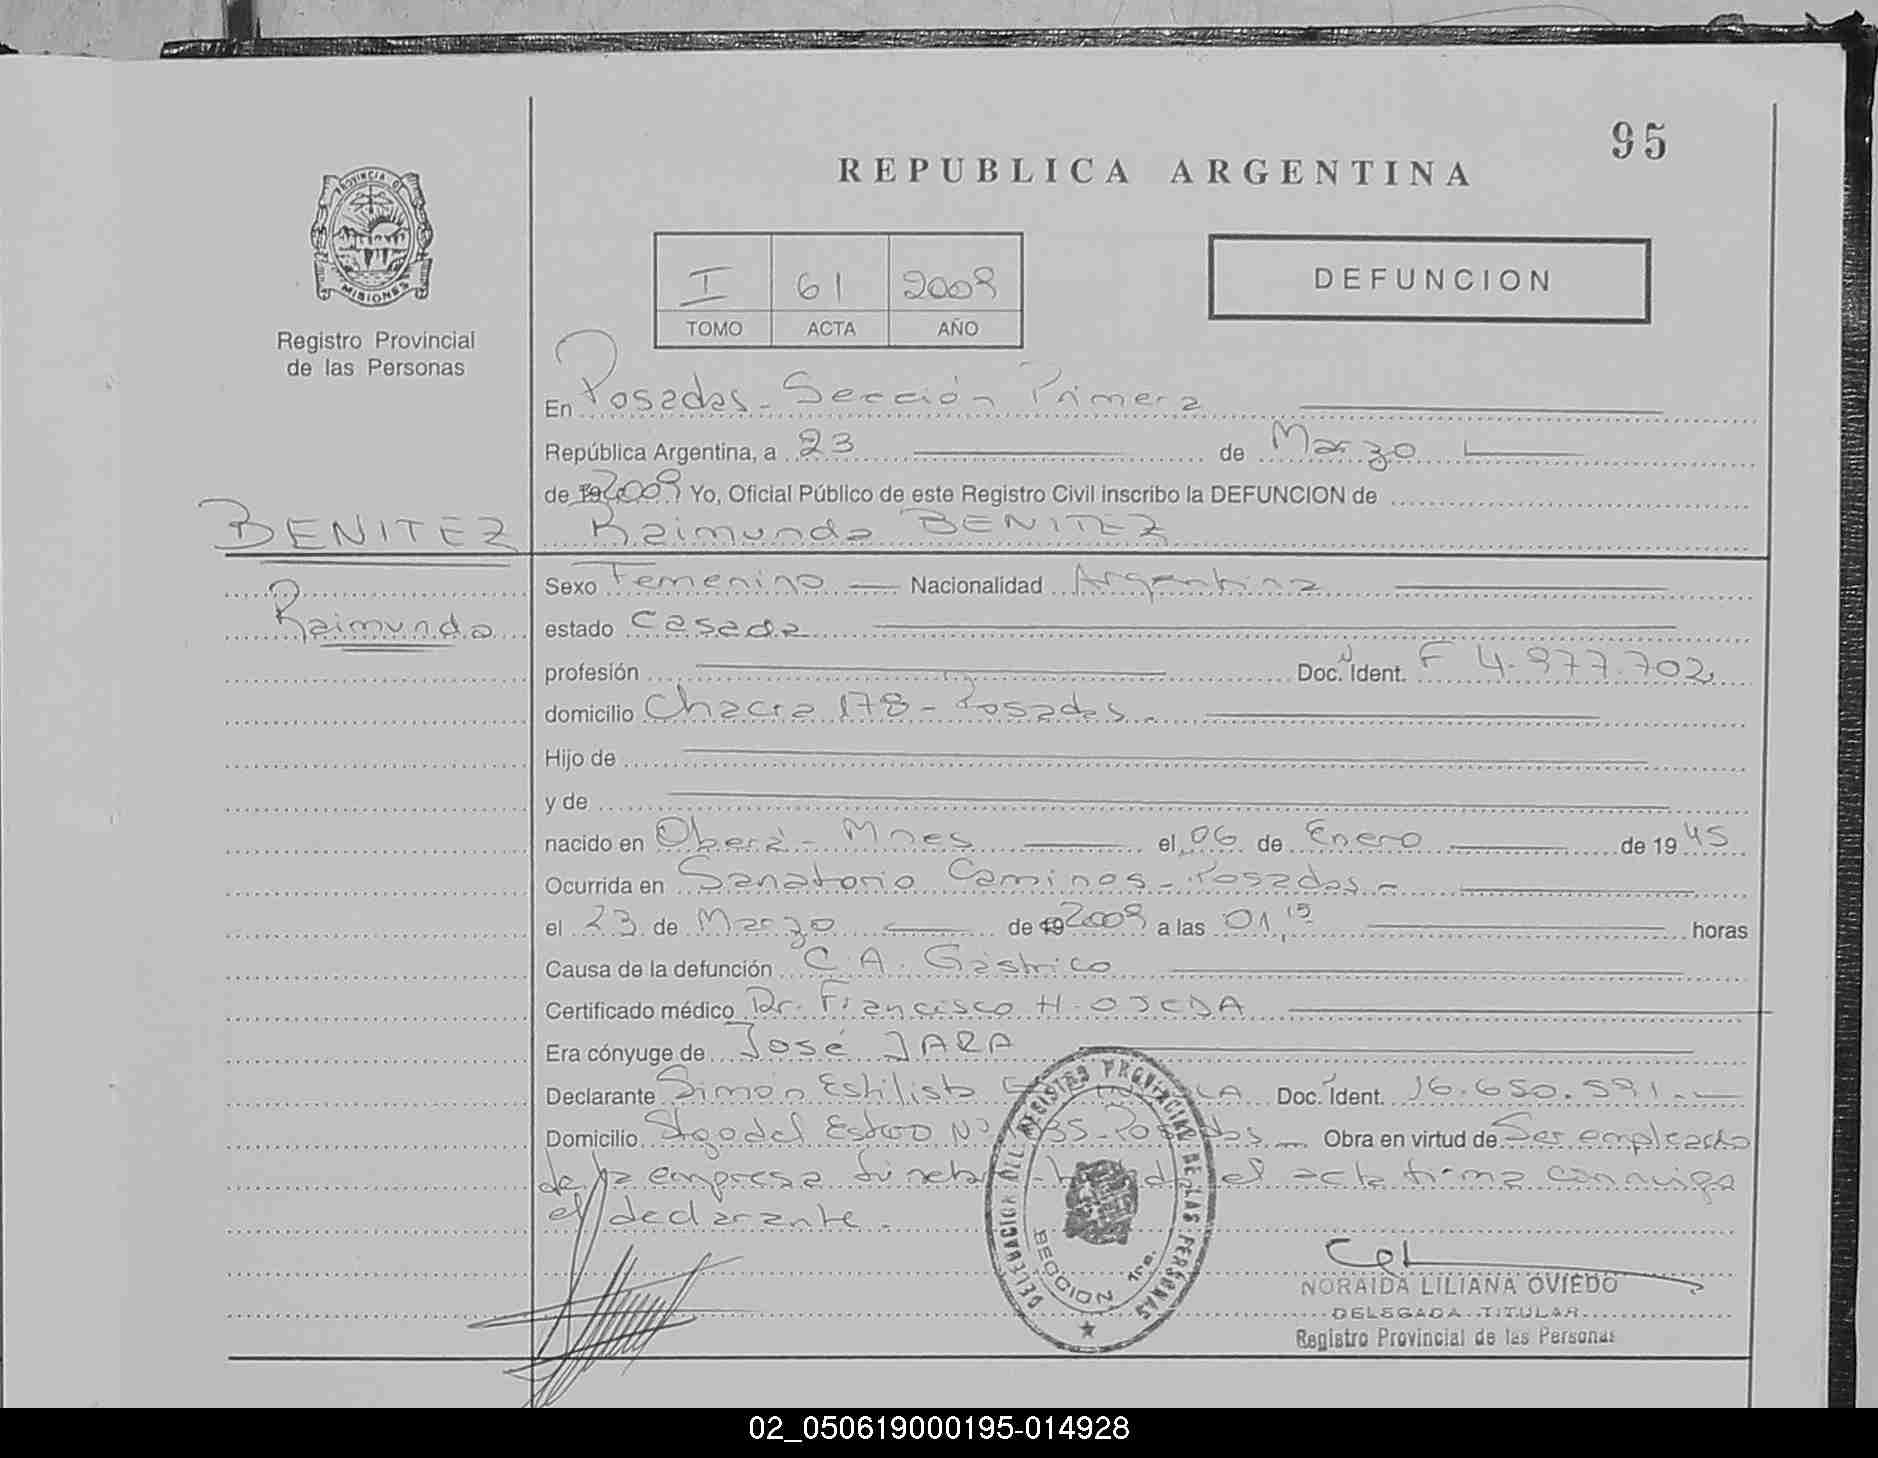 95
REPUBLICA ARGENTINA
PROVINCIA DE
MISIONES
Registro Provincial
de las Personas
I 61 2009
TOMO ACTA AÑO
DEFUNCION
En Posadas - Sección Primera
República Argentina, a 23 de Marzo
de 19 2009 Yo, Oficial Público de este Registro Civil inscribo la DEFUNCION de
BENITEZ Raimunda BENITEZ
Raimunda
Sexo Femenino Nacionalidad Argentina
estado Casada
profesión Doc. Ident. F 4.977.702
domicilio Chacra 178 - Posadas
Hijo de
y de
nacido en Oberá - Mnes el 06 de Enero de 1945
Ocurrida en Sanatorio Caminos - Posadas -
el 23 de Marzo de 19 2009 a las 01,15 horas
Causa de la defunción C.A. Gástrico
Certificado médico Dr. Francisco H. OJEDA
Era cónyuge de José JARA
Declarante Simón Estilisto Doc. Ident. 16.650.591.-
Domicilio Stgo del Estero Nº Posadas - Obra en virtud de Ser empleado
de la empresa el acta firma conmigo
el declarante.
DELEGACION DEL REGISTRO PROVINCIAL DE LAS PERSONAS
SECCION 1ra.
NORAIDA LILIANA OVIEDO
DELEGADA TITULAR
Registro Provincial de las Personas
02_050619000195-014928